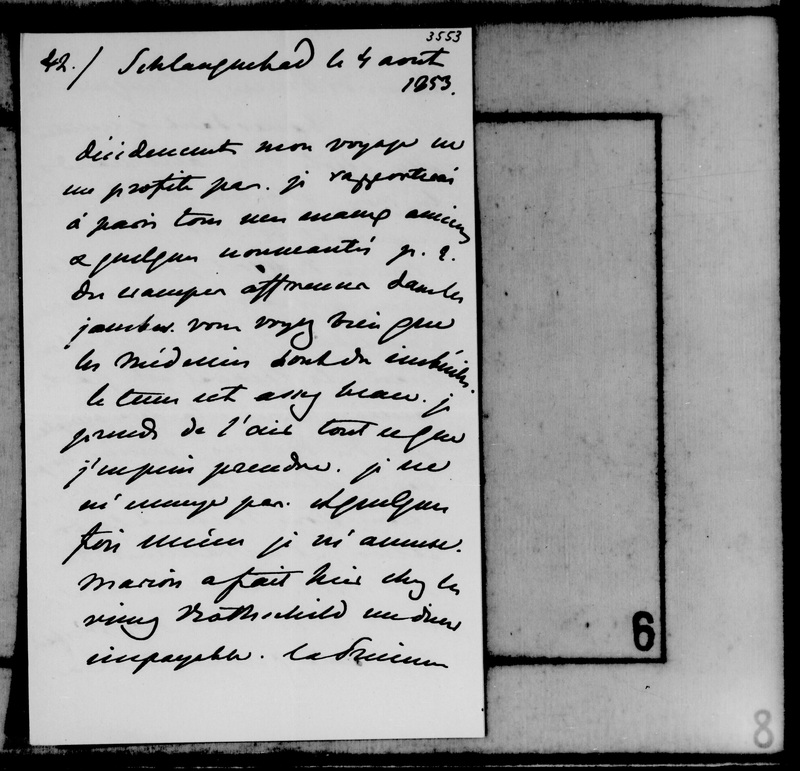 3553
42./ Schlangenbad le 4 aout
1853.
décidement mon voyage ne
me profite pas. je rapporterai
à paris tous mes maux anciens
& quelques nouveautés p. e.
des crampes affreuses dans les
jambes. vous voyez bien que
les médecins sont des imbéciles.
le tems est assez beau. je
prends de l'air tout ce que
j'en puis prendre. je ne
m'ennuye pas. et quelques
fois même je m'amuse.
Marion a fait hier chez les
vieux Rothschild un diner
impayable. la Princesse
6
8